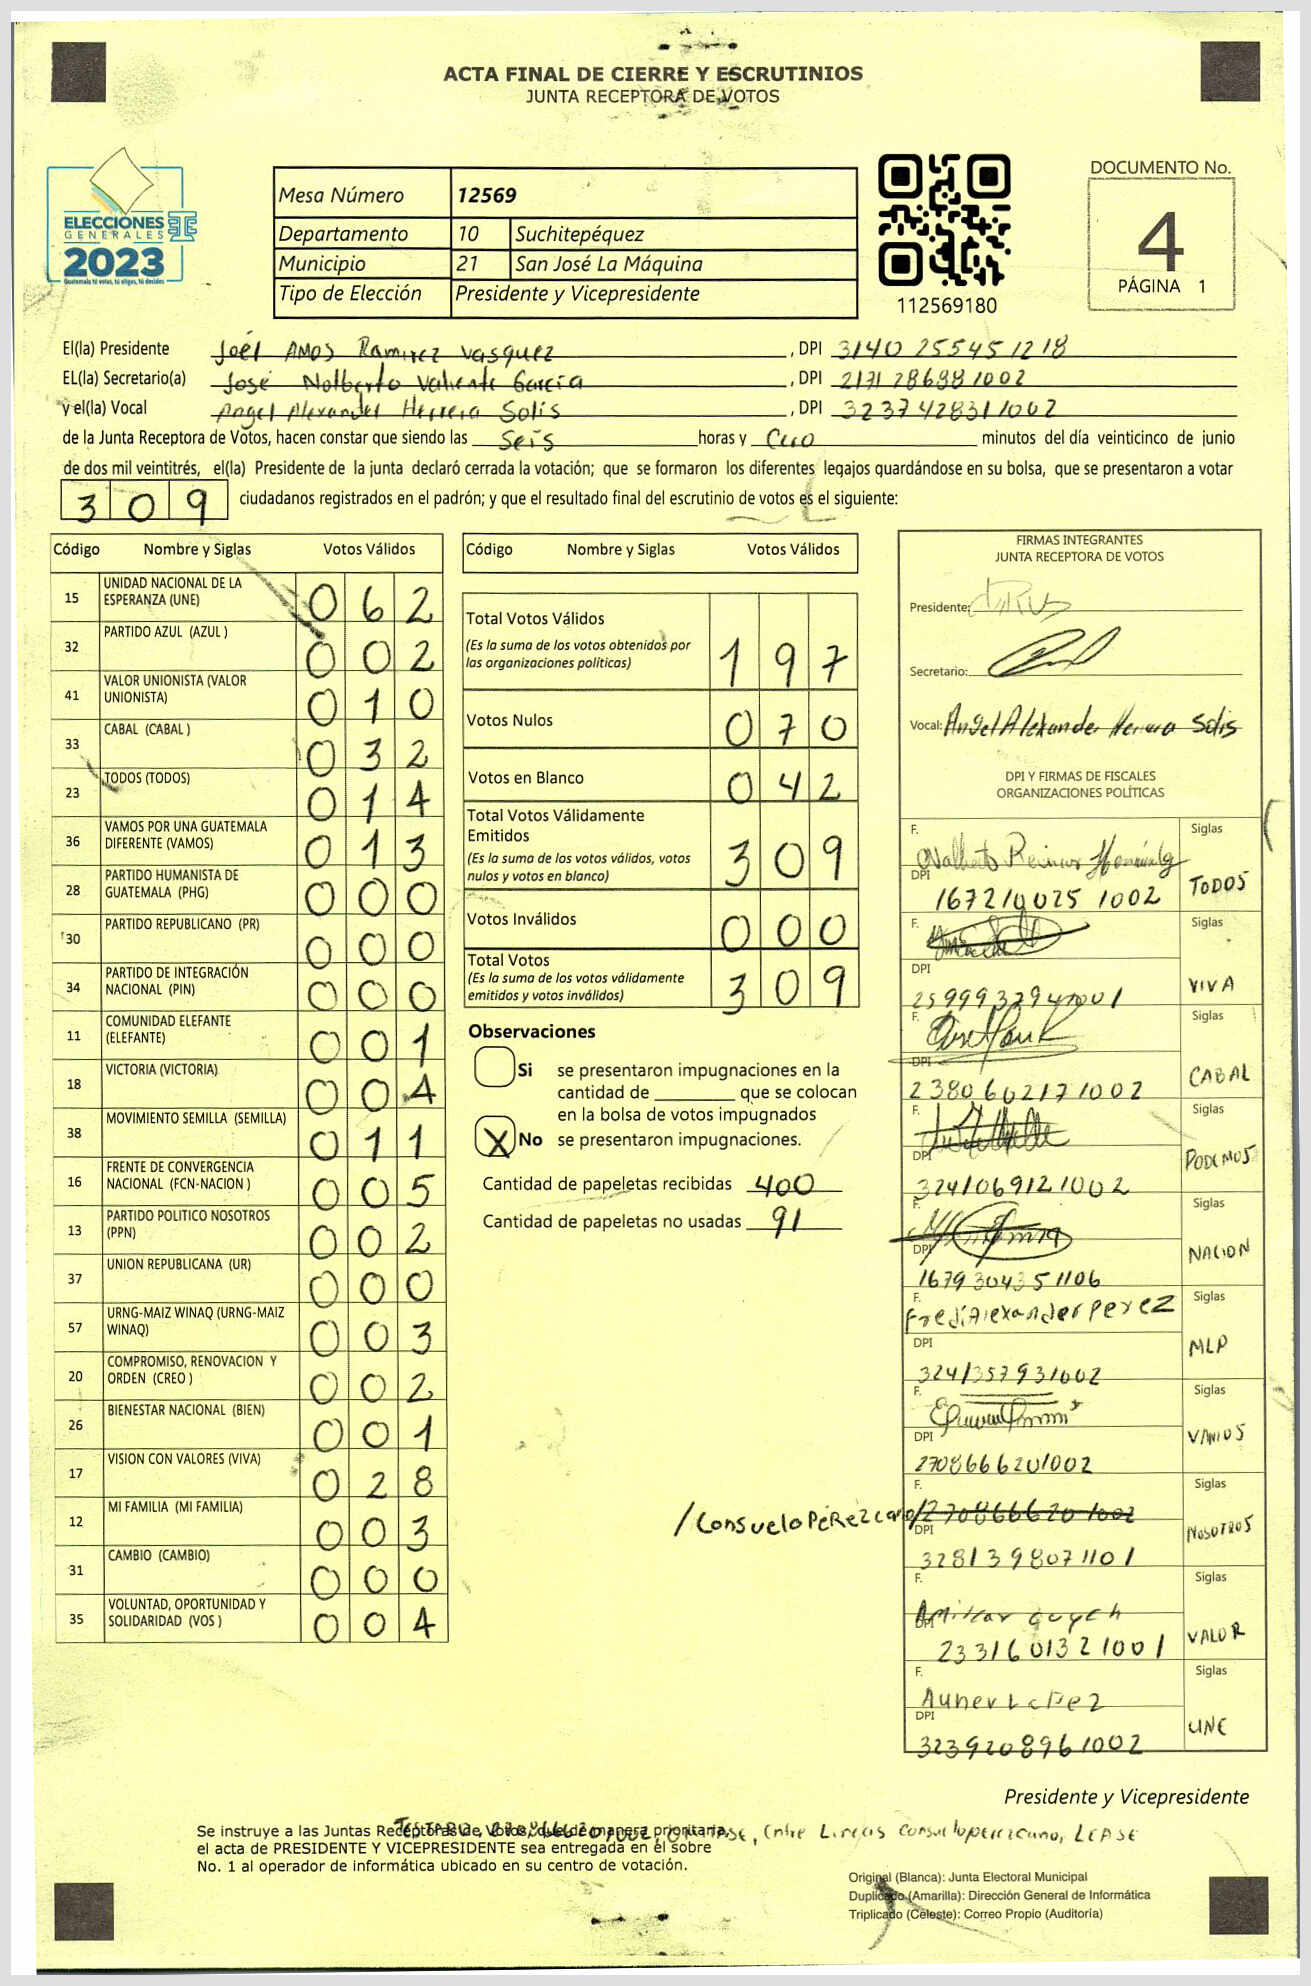 ACTA FINAL DE CIERRE Y ESCRUTINIOS
JUNTA RECEPTORA DE VOTOS
ELECCIONES
GENERALES
2023
Guatemala tú votas, tú eliges, tú decides
Mesa Número 12569
Departamento 10 Suchitepéquez
Municipio 21 San José La Máquina
Tipo de Elección Presidente y Vicepresidente
112569180
DOCUMENTO No.
4
PÁGINA 1
El(la) Presidente Joél Amos Ramirez Vasquez , DPI 3140 25545 1218
EL(la) Secretario(a) José Nolberto Valiente García , DPI 2171 28688 1002
y el(la) Vocal Angel Alexander Herrera Solis , DPI 3237428311002
de la Junta Receptora de Votos, hacen constar que siendo las Seis horas y Cero minutos del día veinticinco de junio
de dos mil veintitrés, el(la) Presidente de la junta declaró cerrada la votación; que se formaron los diferentes legajos guardándose en su bolsa, que se presentaron a votar
309 ciudadanos registrados en el padrón; y que el resultado final del escrutinio de votos es el siguiente:
Código Nombre y Siglas Votos Válidos
15 UNIDAD NACIONAL DE LA ESPERANZA (UNE) 062
32 PARTIDO AZUL (AZUL ) 002
41 VALOR UNIONISTA (VALOR UNIONISTA) 010
33 CABAL (CABAL ) 032
23 TODOS (TODOS) 014
36 VAMOS POR UNA GUATEMALA DIFERENTE (VAMOS) 013
28 PARTIDO HUMANISTA DE GUATEMALA (PHG) 000
30 PARTIDO REPUBLICANO (PR) 000
34 PARTIDO DE INTEGRACIÓN NACIONAL (PIN) 000
11 COMUNIDAD ELEFANTE (ELEFANTE) 001
18 VICTORIA (VICTORIA) 004
38 MOVIMIENTO SEMILLA (SEMILLA) 011
16 FRENTE DE CONVERGENCIA NACIONAL (FCN-NACION ) 005
13 PARTIDO POLITICO NOSOTROS (PPN) 002
37 UNION REPUBLICANA (UR) 000
57 URNG-MAIZ WINAQ (URNG-MAIZ WINAQ) 003
20 COMPROMISO, RENOVACION Y ORDEN (CREO ) 002
26 BIENESTAR NACIONAL (BIEN) 001
17 VISION CON VALORES (VIVA) 028
12 MI FAMILIA (MI FAMILIA) 003
31 CAMBIO (CAMBIO) 000
35 VOLUNTAD, OPORTUNIDAD Y SOLIDARIDAD (VOS ) 004
Código Nombre y Siglas Votos Válidos
Total Votos Válidos 197
(Es la suma de los votos obtenidos por
las organizaciones políticas)
Votos Nulos 070
Votos en Blanco 042
Total Votos Válidamente
Emitidos 309
(Es la suma de los votos válidos, votos
nulos y votos en blanco)
Votos Inválidos 000
Total Votos 309
(Es la suma de los votos válidamente
emitidos y votos inválidos)
Observaciones
Si se presentaron impugnaciones en la
cantidad de ________ que se colocan
en la bolsa de votos impugnados
X No se presentaron impugnaciones.
Cantidad de papeletas recibidas 400
Cantidad de papeletas no usadas 91
FIRMAS INTEGRANTES
JUNTA RECEPTORA DE VOTOS
Presidente:
Secretario:
Vocal: Angel Alexander Herrera Solis
DPI Y FIRMAS DE FISCALES
ORGANIZACIONES POLÍTICAS
F. Siglas
DPI 167210025 1002 TODOS
F. Siglas
DPI 2599932941001 VIVA
F. Siglas
DPI 2380602171002 CABAL
F. Siglas
DPI 3241069121002 PODEMOS
F. Siglas
DPI 1679304351106 NACION
F. Fredi Alexander Perez Siglas
DPI 3241357931002 MLP
F. Siglas
DPI 2708666201002 VAMOS
/Consuelo Perez Cano/ F. 2708666201002 Siglas
DPI 3281398071101 NOSOTROS
F. Amilcar Siglas
DPI 2331601321001 VALOR
F. Auner Lopez Siglas
DPI 3239208961002 UNE
Presidente y Vicepresidente
Testado, 2708666201002, OMITASE, Entre Lineas consueloperezcano, LEASE
Se instruye a las Juntas Receptoras de Votos, que de manera prioritaria,
el acta de PRESIDENTE Y VICEPRESIDENTE sea entregada en el sobre
No. 1 al operador de informática ubicado en su centro de votación.
Original (Blanca): Junta Electoral Municipal
Duplicado (Amarilla): Dirección General de Informática
Triplicado (Celeste): Correo Propio (Auditoría)